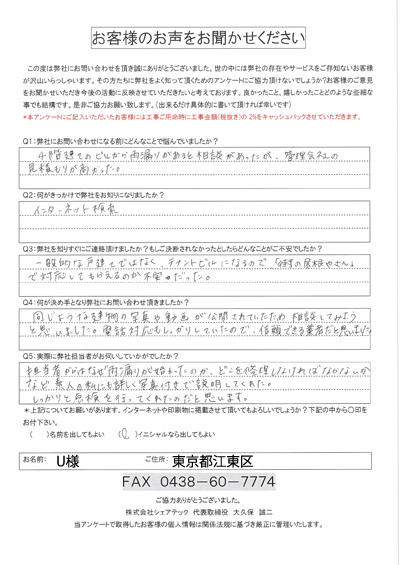 お客様のお声をお聞かせください
この度は弊社にお問い合わせを頂き誠にありがとうございました。世の中には弊社の存在やサービスをご存知ないお客様
が沢山いらっしゃいます。その方たちに弊社をよく知って頂くためのアンケートにご協力頂けないでしょうか?お客様のご意見
をお聞かせいただき今後の活動に反映させていただきたいと考えております。良かったこと、嬉しかったことどのような些細な
事でも結構です。是非ご協力お願い致します。(出来るだけ具体的に書いて頂ければ幸いです)
*本アンケートにご記入いただいたお客様には工事ご用命時に工事金額(税抜き)の 2%をキャッシュバックさせていただきます。
Q1:弊社にお問い合わせになる前にどんなことで悩んでいましたか?
4階建てのビルから雨漏りがあると相談があったが、管理会社の
見積もりが高かった。
Q2:何がきっかけで弊社をお知りになりましたか?
インターネット検索
Q3:弊社を知りすぐにご連絡頂けましたか?もしご決断されなかったとしたらどんなことがご不安でしたか?
一般的な戸建てではなく、テナントビルになるので、「街の屋根やさん」
で対応してもらえるのか不安だった。
Q4:何が決め手となり弊社にお問い合わせ頂きましたか?
同じような建物の写真や動画が公開されていたため相談してみよう
と思いました。電話対応もしっかりしていたので、信頼できる業者だと思いました
Q5:実際に弊社担当者がお伺いしていかがでしたか?
担当者がなぜ雨漏りが始まったのか、どこを修理しなければならないか
など素人の私にも詳しく写真付きで説明してくれた。
しっかりと点検を行ってくれたのだと思います。
*上記についてお願いがあります。インターネットや印刷物に掲載させて頂いてもよろしいでしょうか?下記の中から○印を
お付け下さい。
( )名前を出してもよい (○)イニシャルなら出してもよい
お名前: U様 ご住所: 東京都江東区
FAX 0438-60-7774
ご協力ありがとうございました。
株式会社シェアテック 代表取締役 大久保 誠二
当アンケートで取得したお客様の個人情報は関係法規に基づき厳正に管理いたします。